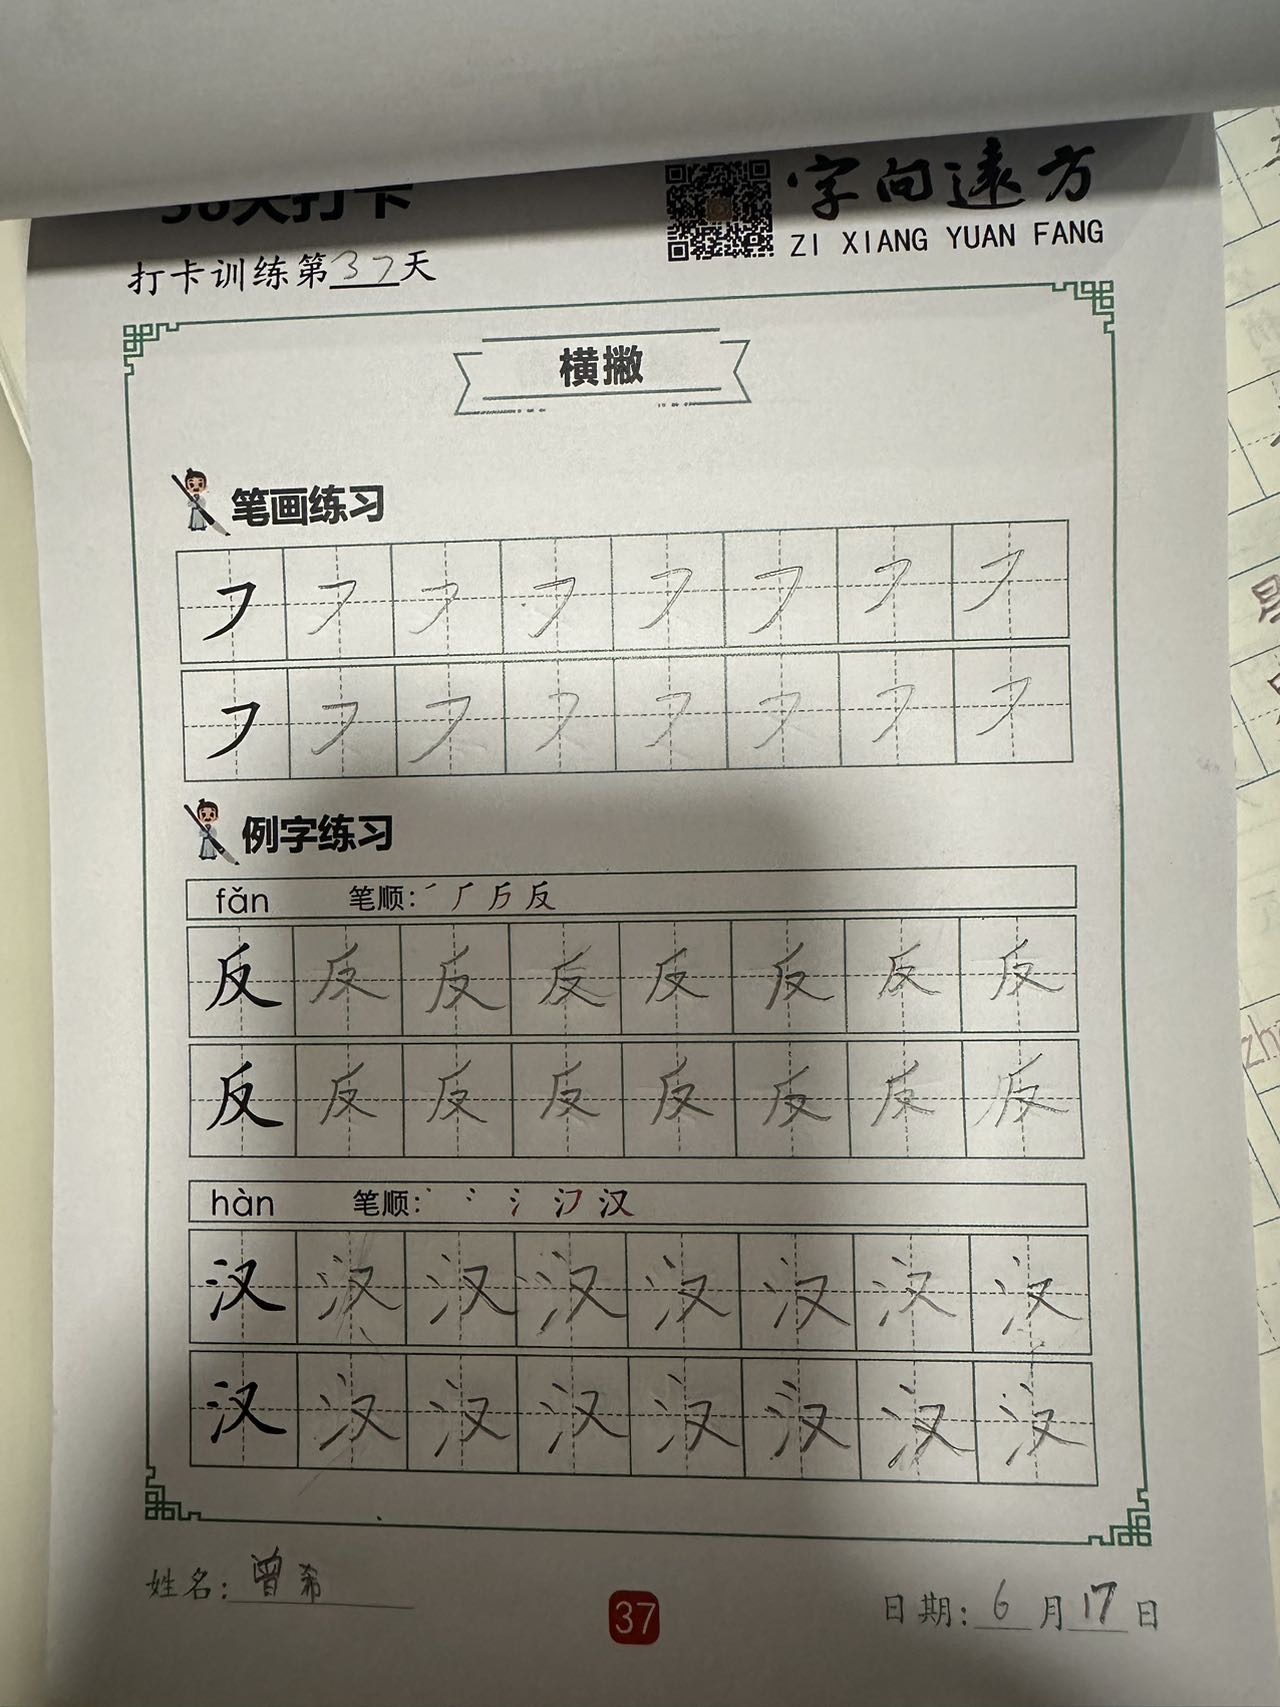 天打卡
字向遠方
ZI XIANG YUAN FANG
打卡训练第37天
横撇
笔画练习
㇇ ㇇ ㇇ ㇇ ㇇ ㇇ ㇇ ㇇
㇇ ㇇ ㇇ ㇇ ㇇ ㇇ ㇇ ㇇
例字练习
fǎn 笔顺: 反
反 反 反 反 反 反 反 反
反 反 反 反 反 反 反 反
hàn 笔顺: 丶 冫 氵 汉
汉 汉 汉 汉 汉 汉 汉 汉
汉 汉 汉 汉 汉 汉 汉 汉
姓名: 曾希
37
日期: 6 月 17 日
zh